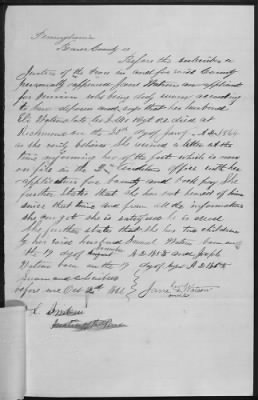 Pennsylvania
Beaver County ss
Before the subscriber a
Justice of the Peace in and for said County
personally appeared Jane Watson an applicant
for pension who being duly sworn according
to law deposes and says that her husband
late Co I Regt died at
Richmond on the day of Jany A D 1864
as she verily believes She received a letter at the
time informing her of the fact which is now
on file in the 2nd Auditors office with her
application for bounty and back pay She
further states that she has not heard of him
since that time and from all the information
she can get she is satisfied he is dead
She further states that she has two children
by her said husband Watson born on
the 19 day of August A D and Joseph
Watson born on the 19 day of A D
Sworn and subscribed
before me Oct 2nd 1866
Jane her Watson
mark
Justice of the Peace